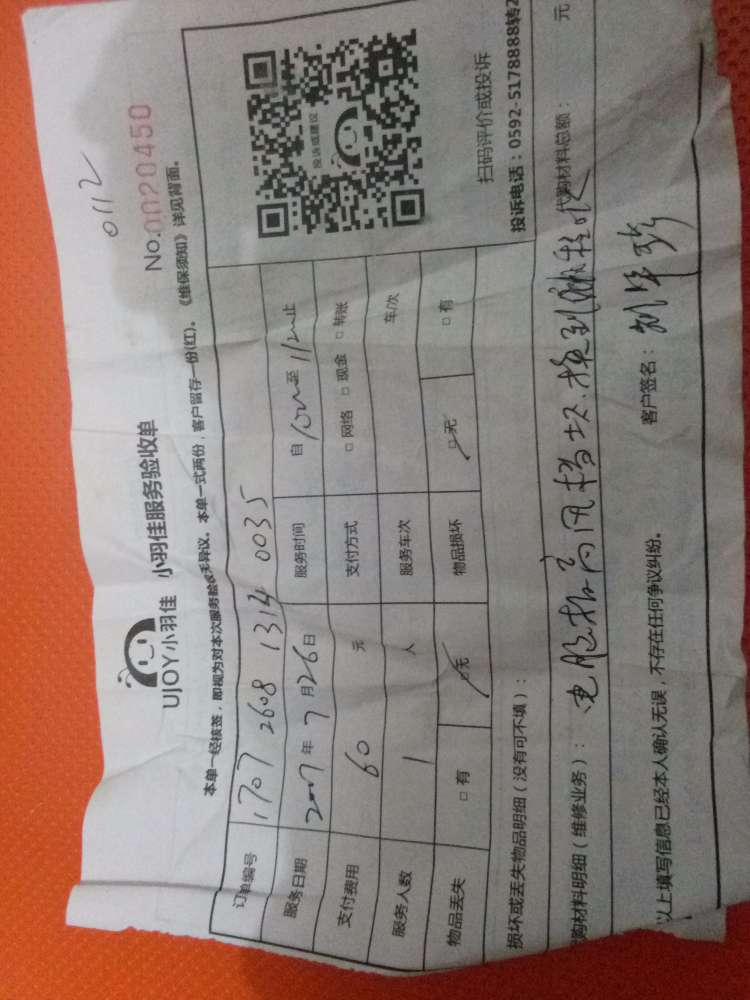 0112
No.0020450
UJOY小羽佳 小羽佳服务验收单
本单一经核签，即视为对本次服务验收无异议。本单一式两份，客户留存一份(红)。《维保须知》详见背面。
订单编号 1707 2608 1314 0035
服务日期 2007年7月26日 服务时间 自 至 止
支付费用 60 元 支付方式 □网络 □现金 □转账
服务人数 1 人 服务车次 车/次
物品丢失 □有 □无 物品损坏 □无 □有
投诉或建议
扫码评价或投诉
投诉电话：0592-5178888转2
损坏或丢失物品明细（没有可不填）：
购材料明细（维修业务）：电脑板高风档坏 换到 代购材料总额： 元
以上填写信息已经本人确认无误，不存在任何争议纠纷。 客户签名：